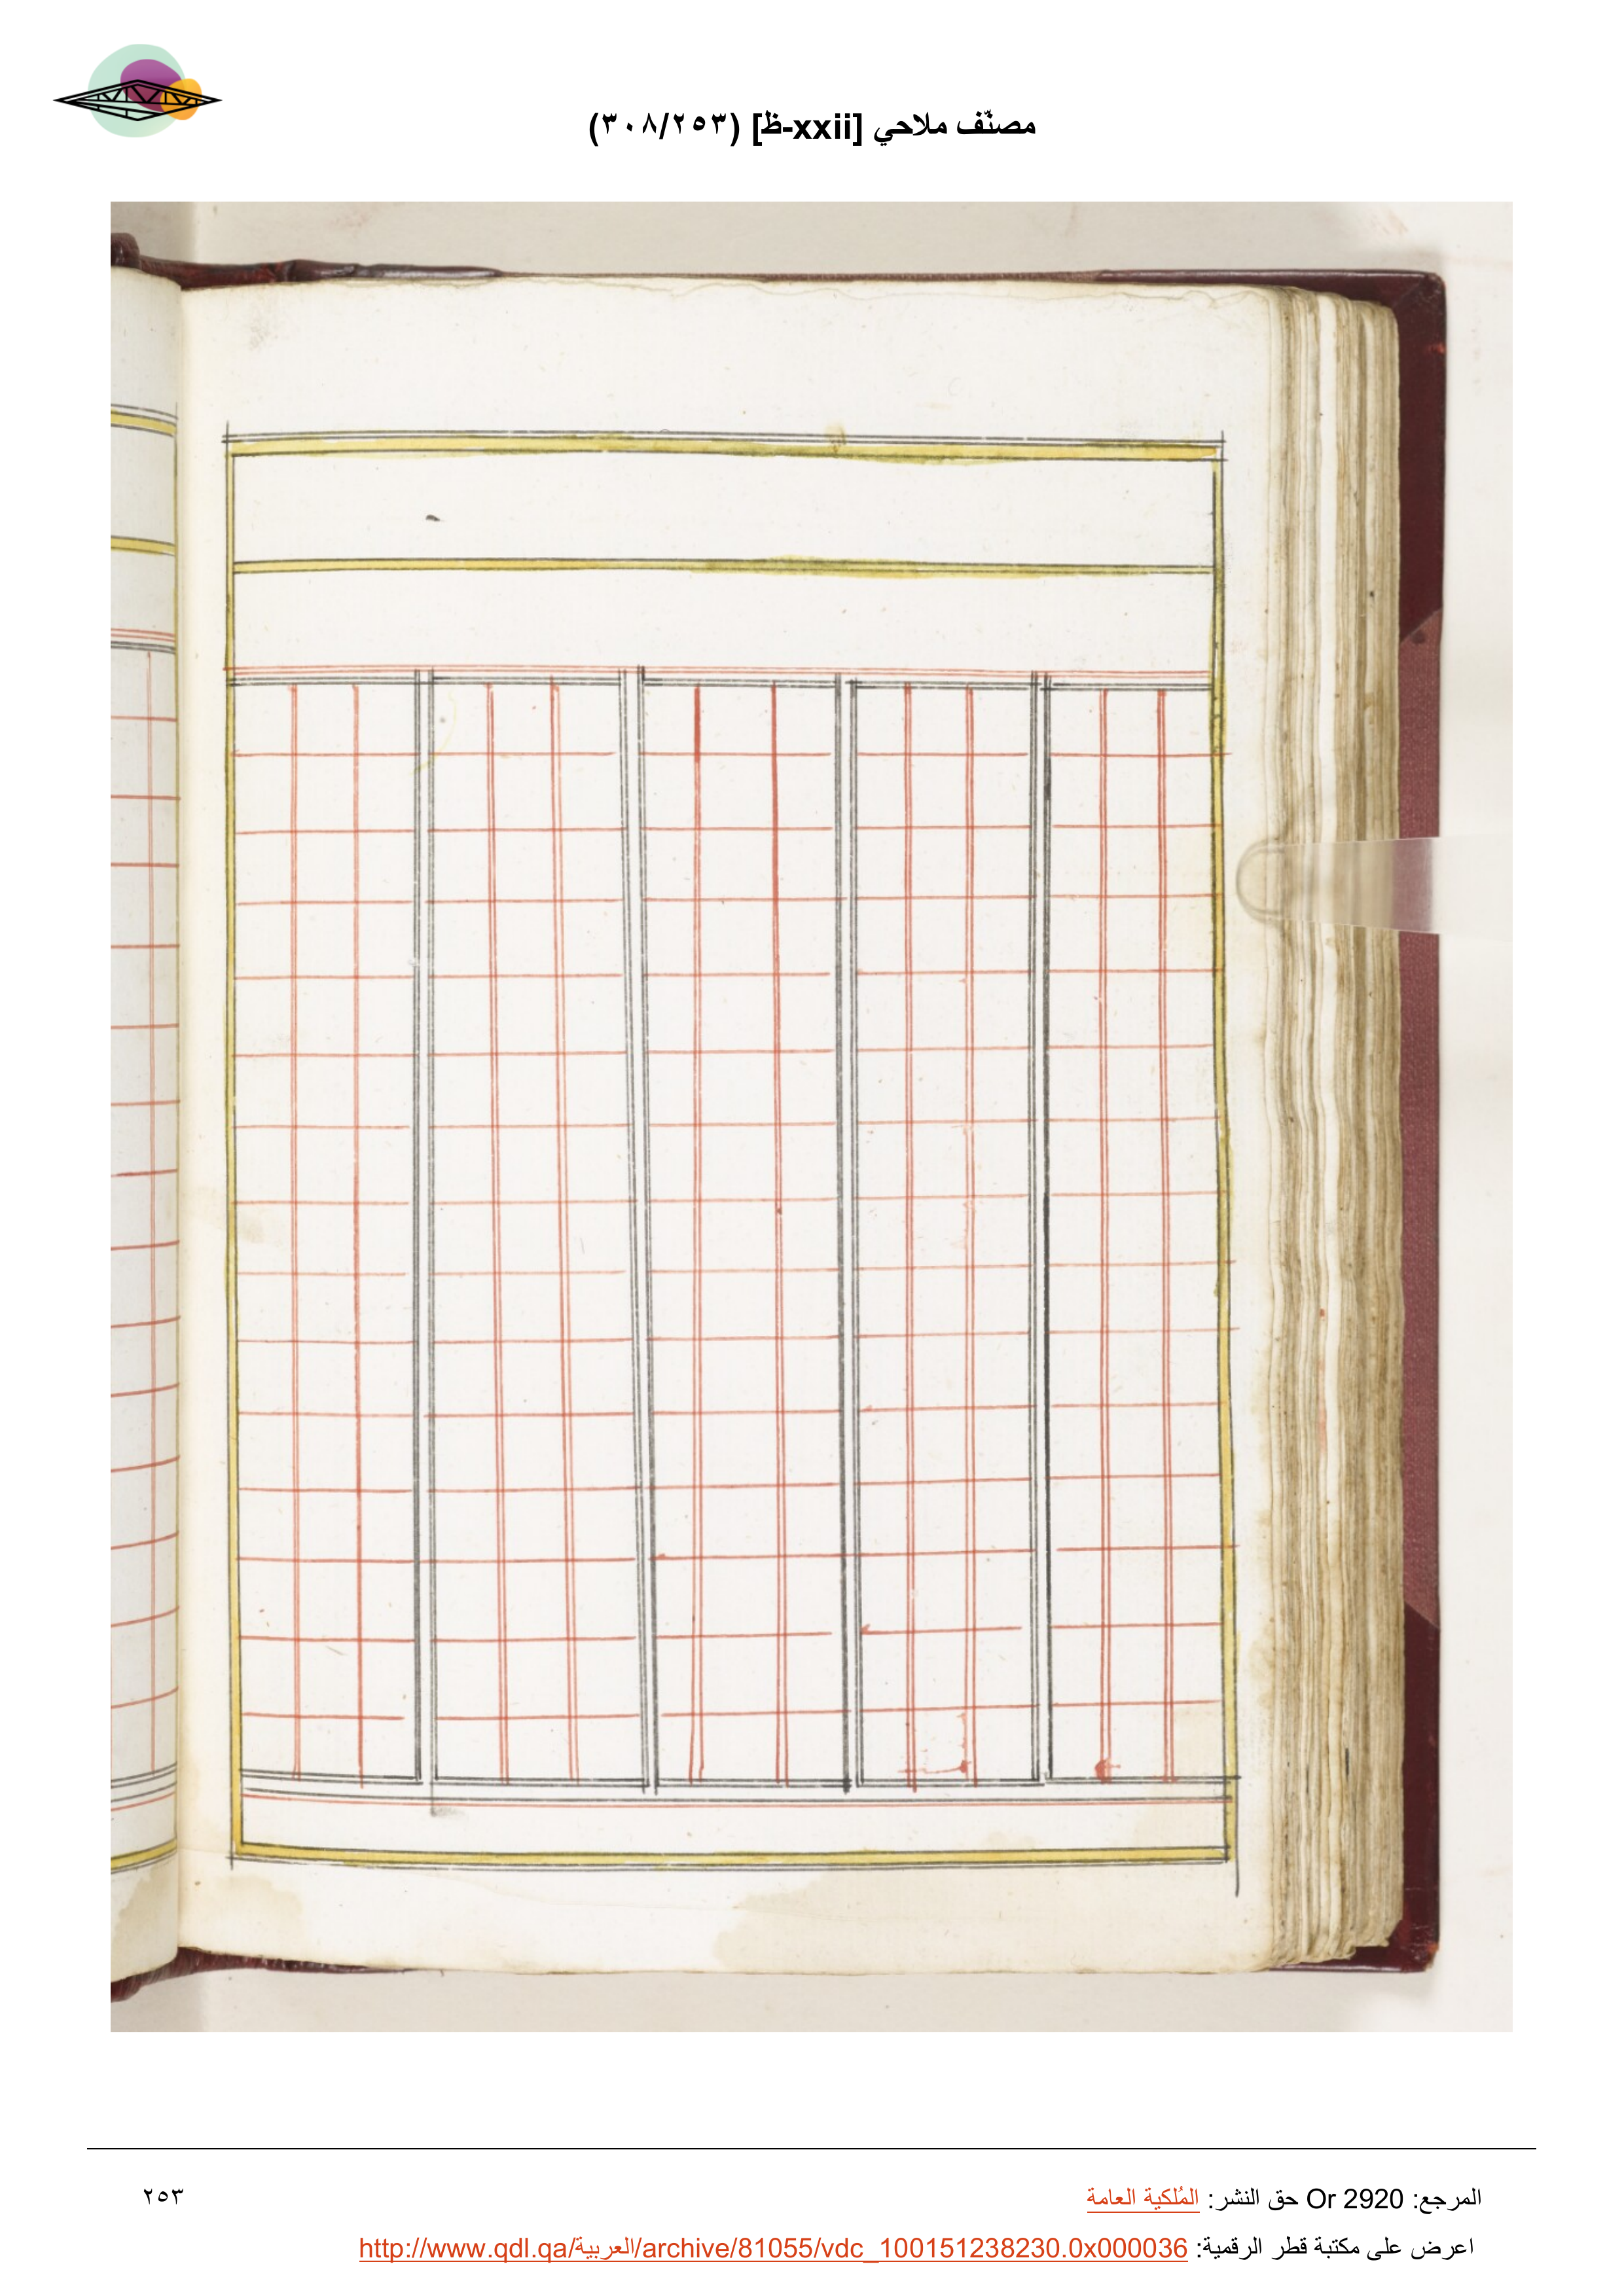 مصنّف ملاحي [xxii-ظ] (٣٠٨/٢٥٣)
المرجع: Or 2920 حق النشر: المُلكية العامة
٢٥٣
اعرض على مكتبة قطر الرقمية: http://www.qdl.qa/العربية/archive/81055/vdc_100151238230.0x000036